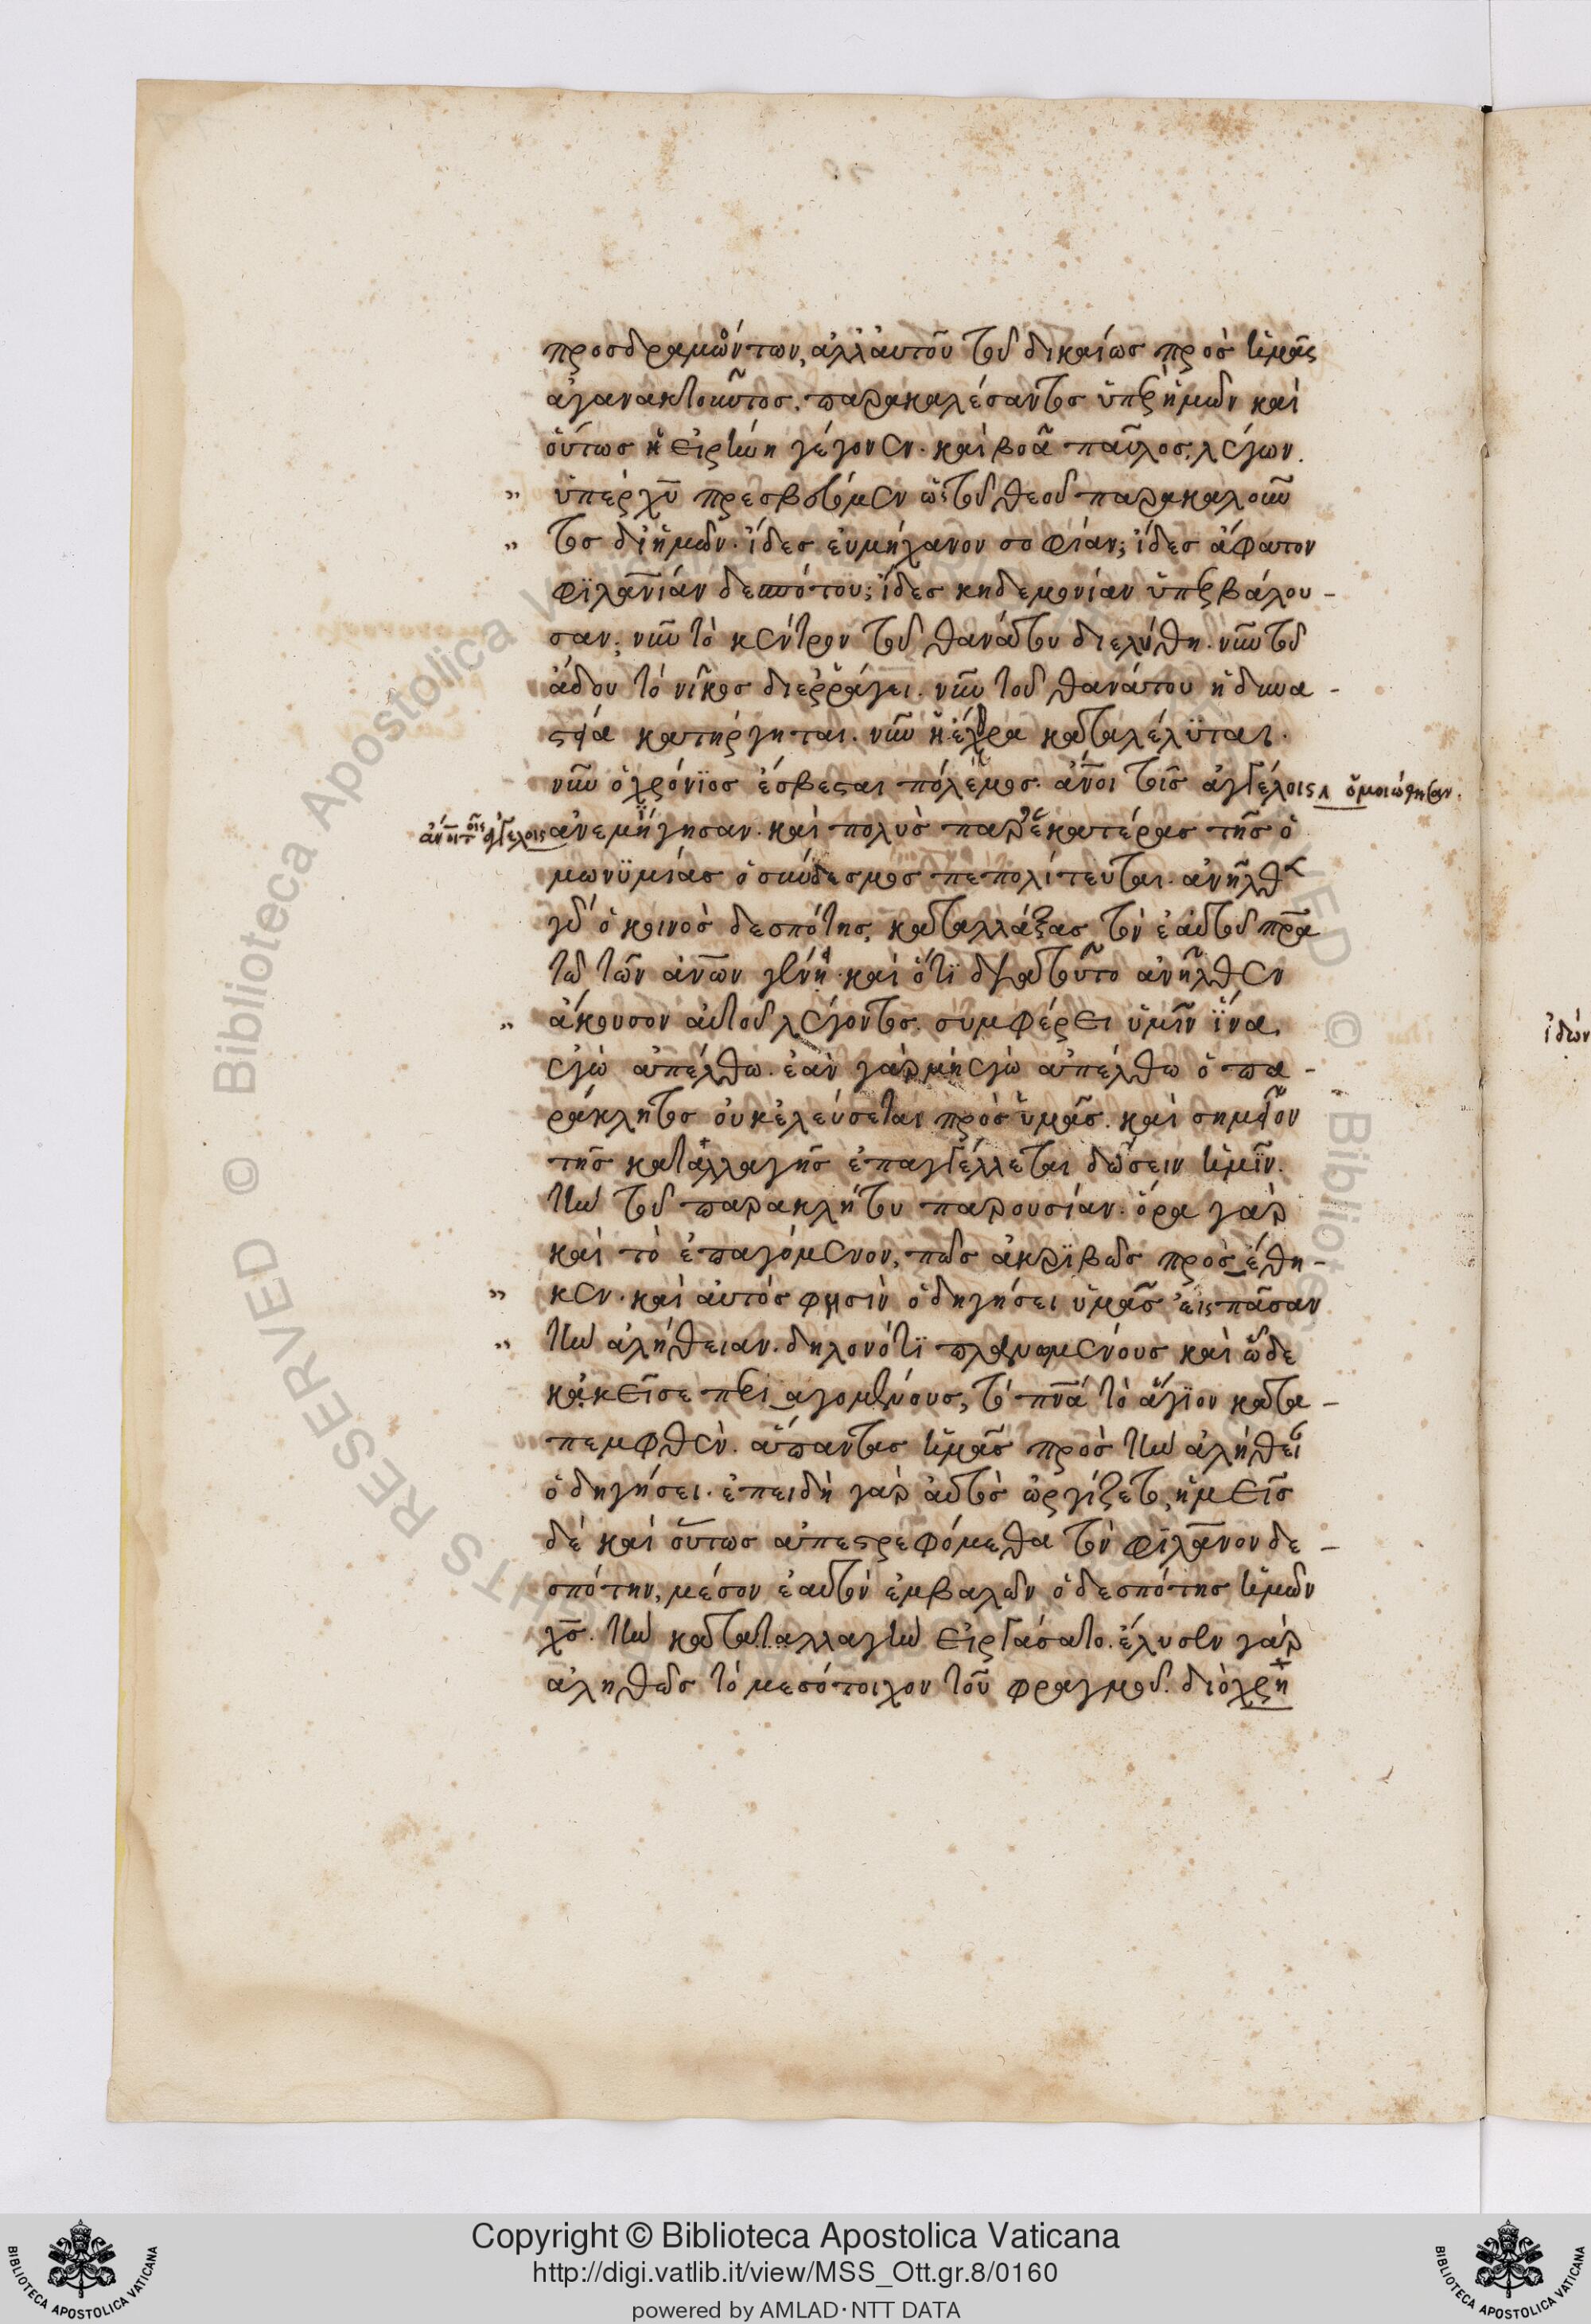 προσδραμόντων, ἀλλ' αὐτοῦ τοῦ δικαίως πρὸς ἡμᾶς
ἀγανακτοῦντος, παρακαλέσαντος ὑπὲρ ἡμῶν καὶ
οὕτως ἡ εἰρήνη γέγονεν. καὶ βοᾶ παῦλος, λέγων.
ὑπὲρ χῦ πρεσβεύομεν ὡς τοῦ θεοῦ παρακαλοῦν
τος δι' ἡμῶν. ἴδες εὐμήχανον σοφίαν; ἴδες ἄφατον
φιλανίαν δεσπότου; ἴδες κηδεμονίαν ὑπερβάλου-
σαν; νῦν τὸ κέντρον τοῦ θανάτου διελύθη. νῦν τοῦ
ἅδου τὸ νῖκος διερράγει. νῦν τοῦ θανάτου ἡ δυνα-
στεία κατήργηται. νῦν ἡ ἔχθρα καταλέλϋται.
νῦν ὁ χρόνϊος ἔσβεσται πόλεμος. ἄνοι τοῖς ἀγγέλοις ὁμοιώθησαν.
ἄνοι τοῖς ἀγγέλοις ἀνεμίγησαν. καὶ πολὺς παρ' ἑκατέρας τῆς ὁ
μωνϋμίας ὁ σύνδεσμος πεπολίτευται. ἀνῆλθε
γὰρ ὁ κοινὸς δεσπότης, καταλλάξας τὸν ἑαυτοῦ πρα
τῶ τῶν ἀνων γένει. καὶ ὅτϊ διὰ τοῦτο ἀνῆλθεν
ἄκουσον αὐτοῦ λέγοντος. συμφέρει ὑμῖν ἵνα
ἐγὼ ἀπέλθω. ἐὰν γὰρ μὴ ἐγὼ ἀπέλθω ὁ πα-
ράκλητος οὐκ ἐλεύσεται πρὸς ὑμᾶς. καὶ σημεῖον
τῆς καταλλαγῆς ἐπαγγέλλεται δώσειν ἡμῖν.
τὴν τοῦ παρακλήτου παρουσίαν. ὅρα γὰρ
καὶ τὸ ἐπαγόμενον, πῶς ἀκρϊβῶς προσέθη-
κεν. καὶ αὐτός φησιν ὁδηγήσει ὑμᾶς εἰς πᾶσαν
τὴν ἀλήθειαν. δηλονότϊ πλανωμένους καὶ ὧδε
κἀκεῖσε περιαγομένους, τὸ πνα τὸ ἅγϊον κατα-
πεμφθὲν. ἅπαντας ἡμᾶς πρὸς τὴν ἀλήθει
ὁδηγήσει. ἐπειδὴ γὰρ αὐτὸς ὠργίζετο, ἡμεῖς
δὲ καὶ οὕτως ἀπεστρεφόμεθα τὸν φιλανον δε-
σπότην, μέσον ἑαυτὸν ἐμβαλὼν ὁ δεσπότης ἡμῶν
χς. τὴν καταλλαγὴν εἰργάσατο. ἔλυσεν γὰρ
ἀληθῶς τὸ μεσότοιχον τοῦ φραγμοῦ. διὸ χρὴ
ἰδὼν
Copyright © Biblioteca Apostolica Vaticana
http://digi.vatlib.it/view/MSS_Ott.gr.8/0160
powered by AMLAD·NTT DATA